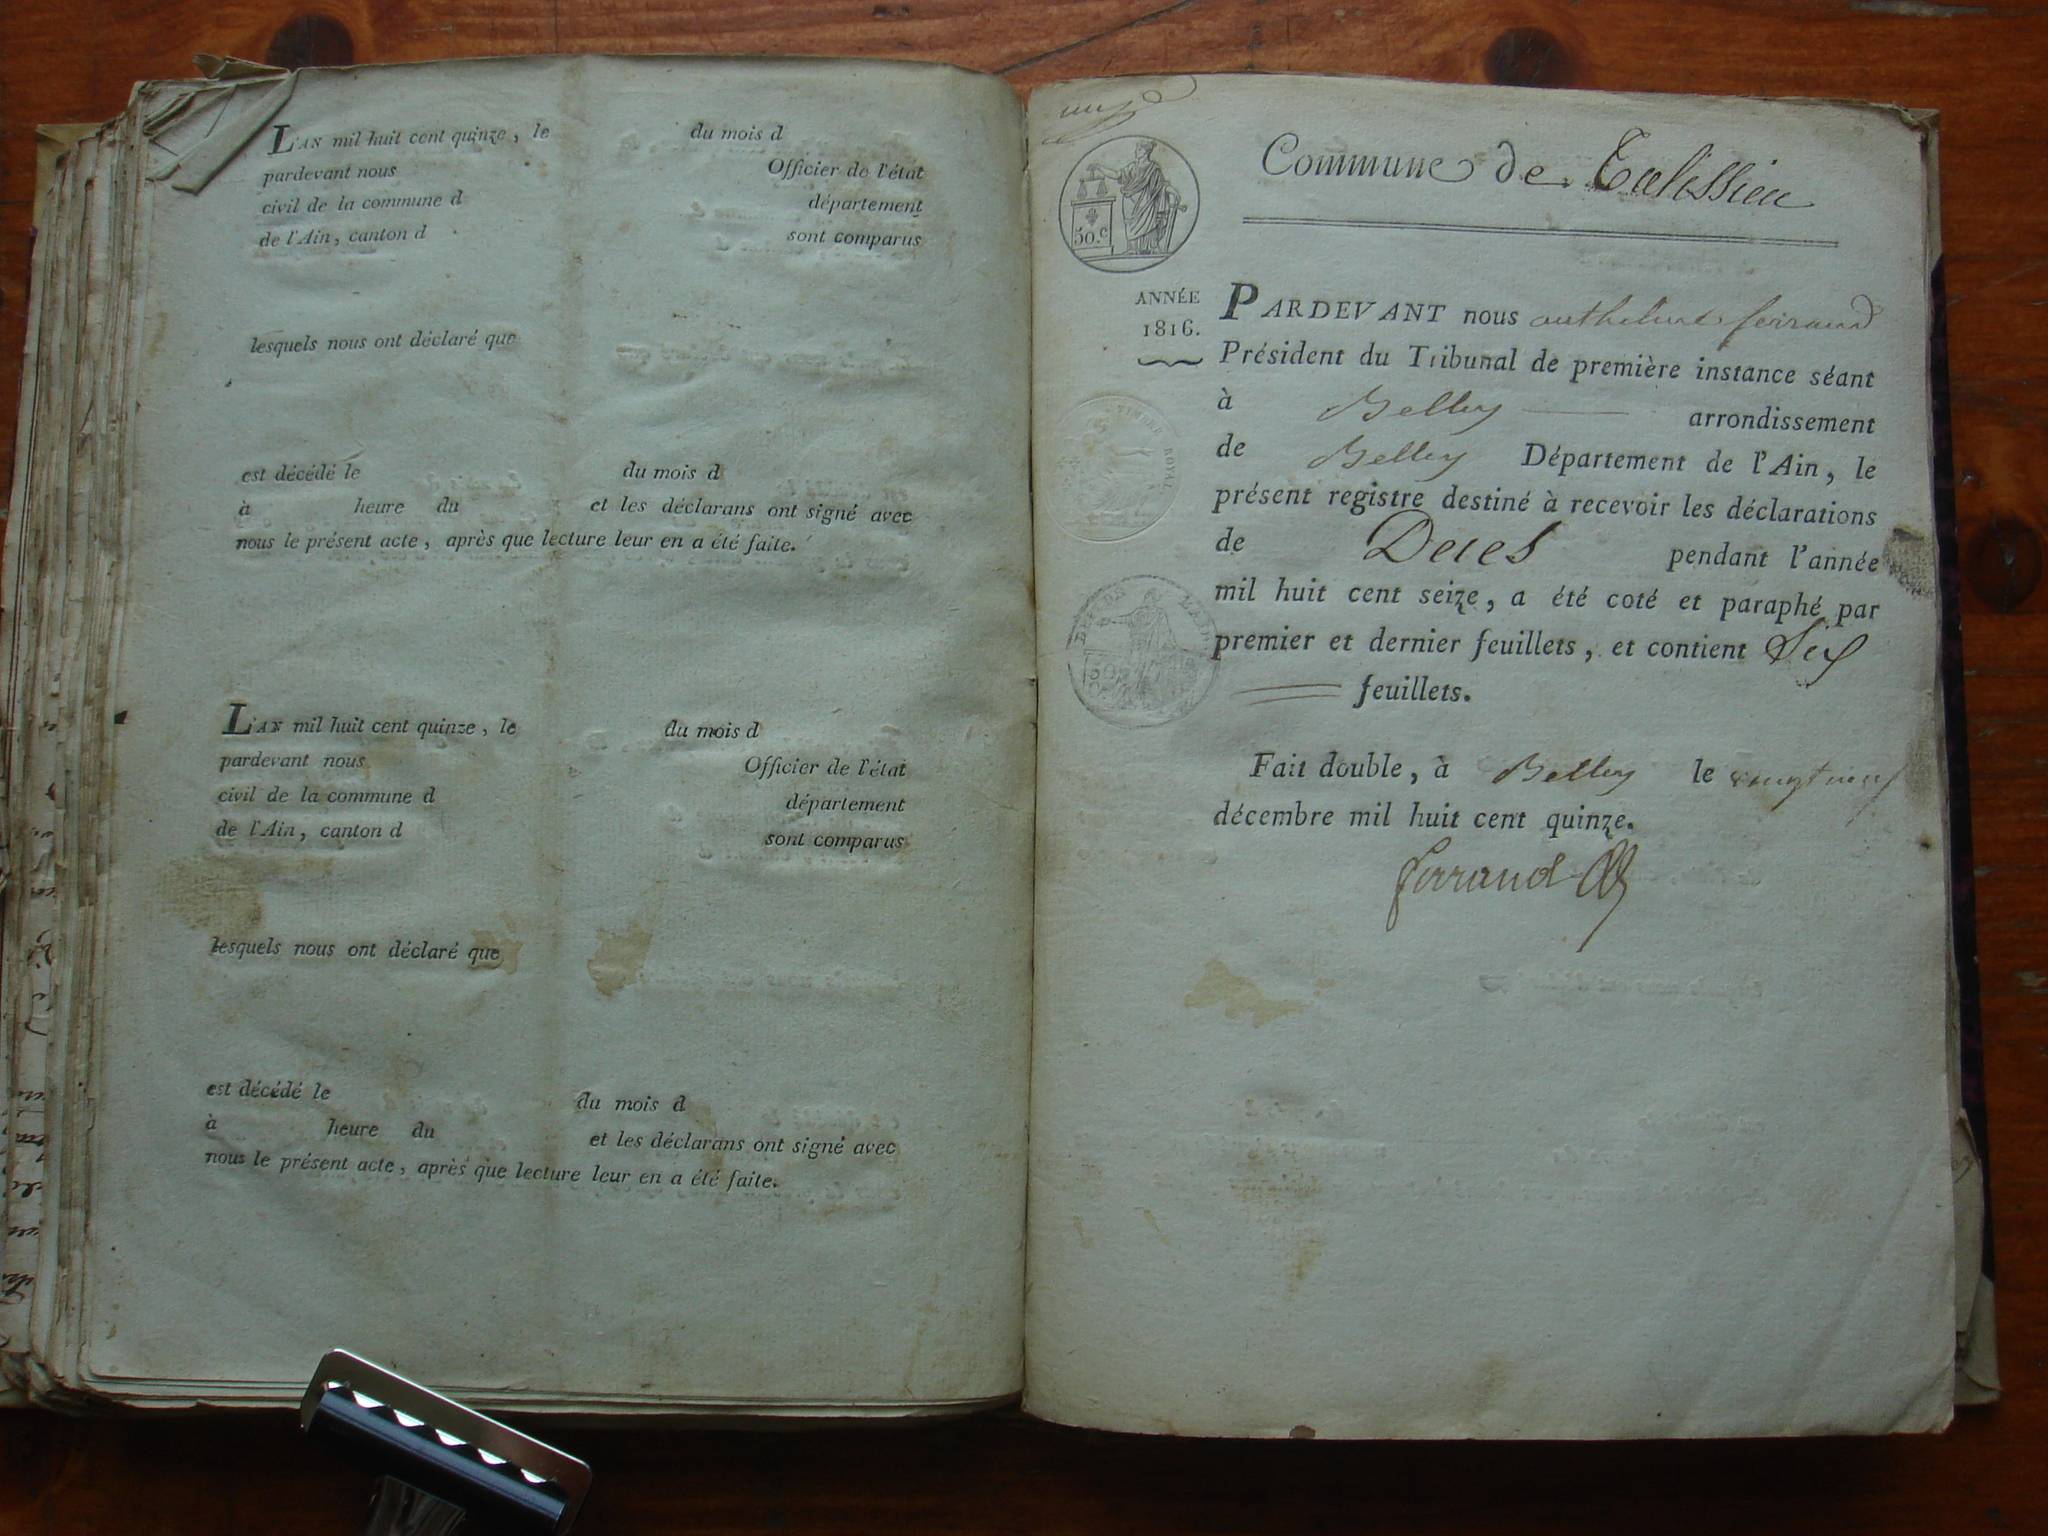 L'AN mil huit cent quinze, le du mois d
pardevant nous Officier de l'état
civil de la commune d département
de l'Ain, canton d sont comparus
lesquels nous ont déclaré que
est décédé le du mois d
à heure du et les déclarans ont signé avec
nous le présent acte, après que lecture leur en a été faite.
L'AN mil huit cent quinze, le du mois d
pardevant nous Officier de l'état
civil de la commune d département
de l'Ain, canton d sont comparus
lesquels nous ont déclaré que
est décédé le du mois d
à heure du et les déclarans ont signé avec
nous le présent acte, après que lecture leur en a été faite.
Commune de Talissieu
50.c
ANNÉE
1816.
TIMBRE ROYAL
PARDEVANT nous anthelme ferrand
Président du Tribunal de première instance séant
à Belley arrondissement
de Belley Département de l'Ain, le
présent registre destiné à recevoir les déclarations
de Deces pendant l'année
mil huit cent seize, a été coté et paraphé par
premier et dernier feuillets, et contient Six
feuillets.
Fait double, à Belley le vingt neuf
décembre mil huit cent quinze.
ferrand